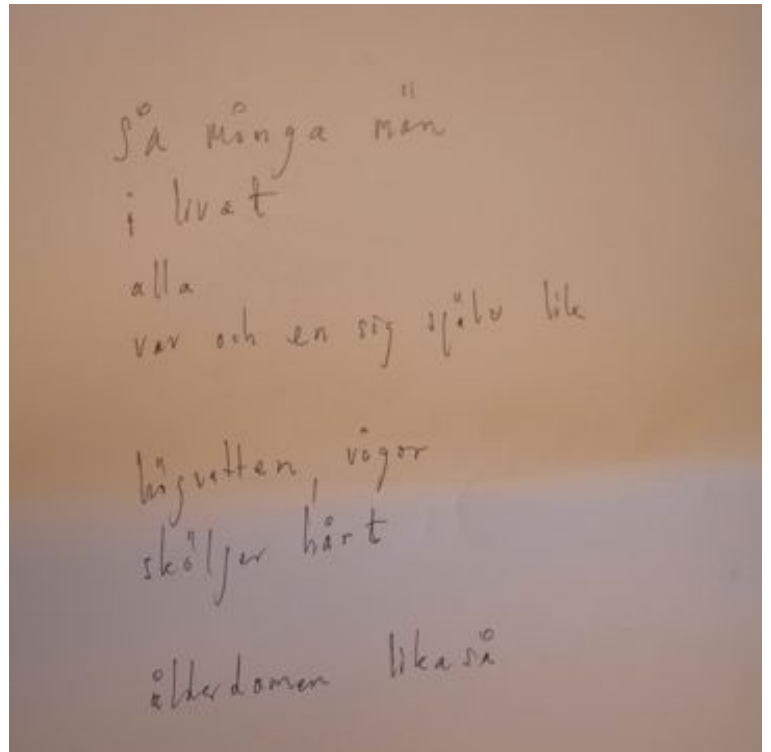 så många män
i livet
alla
var och en sig själv lik
högvatten, vågor
sköljer hårt
ålderdomen likaså